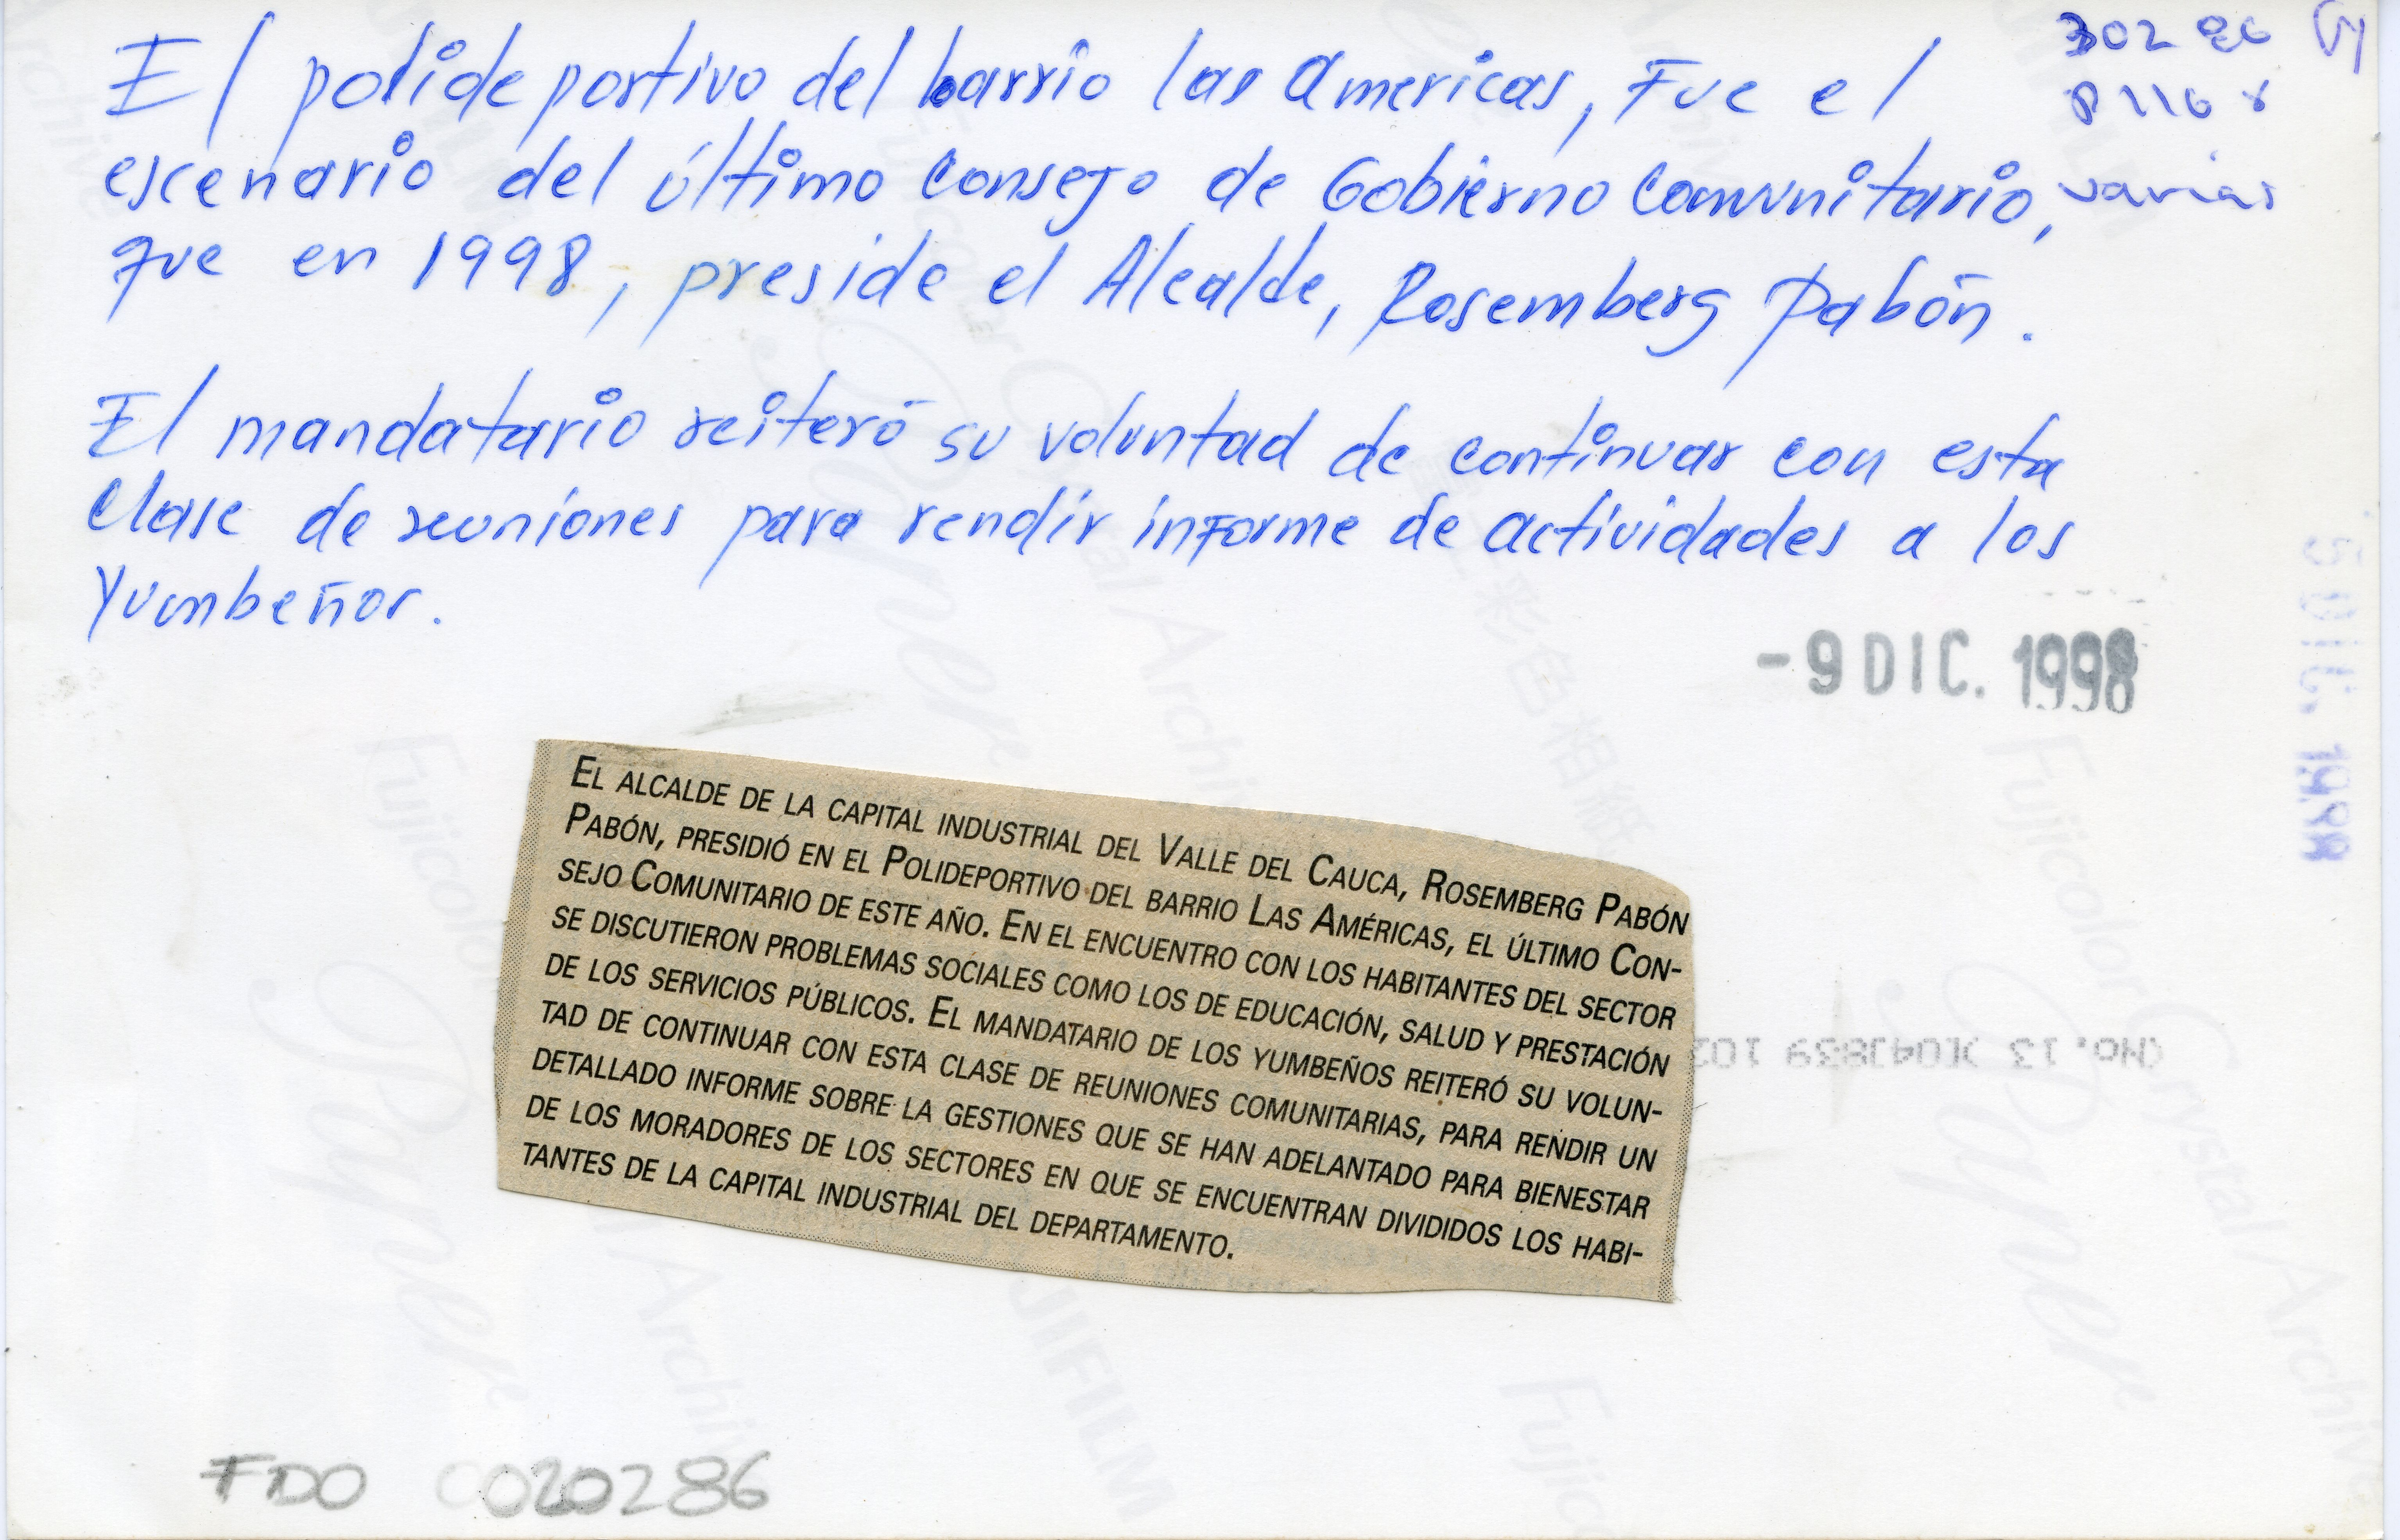 El polideportivo del barrio las americas, Fue el
escenario del último consejo de Gobierno comunitario,
que en 1998, preside el Alcalde, Rosemberg Pabón.
varias
El mandatario reiteró su voluntad de continuar con esta
clase de reuniones para rendir informe de actividades a los
Yumbeños.
-9 DIC. 1998
5 DIC. 1998
EL ALCALDE DE LA CAPITAL INDUSTRIAL DEL VALLE DEL CAUCA, ROSEMBERG PABÓN
PABÓN, PRESIDIÓ EN EL POLIDEPORTIVO DEL BARRIO LAS AMÉRICAS, EL ÚLTIMO CON-
SEJO COMUNITARIO DE ESTE AÑO. EN EL ENCUENTRO CON LOS HABITANTES DEL SECTOR
SE DISCUTIERON PROBLEMAS SOCIALES COMO LOS DE EDUCACIÓN, SALUD Y PRESTACIÓN
DE LOS SERVICIOS PÚBLICOS. EL MANDATARIO DE LOS YUMBEÑOS REITERÓ SU VOLUN-
TAD DE CONTINUAR CON ESTA CLASE DE REUNIONES COMUNITARIAS, PARA RENDIR UN
DETALLADO INFORME SOBRE LA GESTIONES QUE SE HAN ADELANTADO PARA BIENESTAR
DE LOS MORADORES DE LOS SECTORES EN QUE SE ENCUENTRAN DIVIDIDOS LOS HABI-
TANTES DE LA CAPITAL INDUSTRIAL DEL DEPARTAMENTO.
FDO 0020286